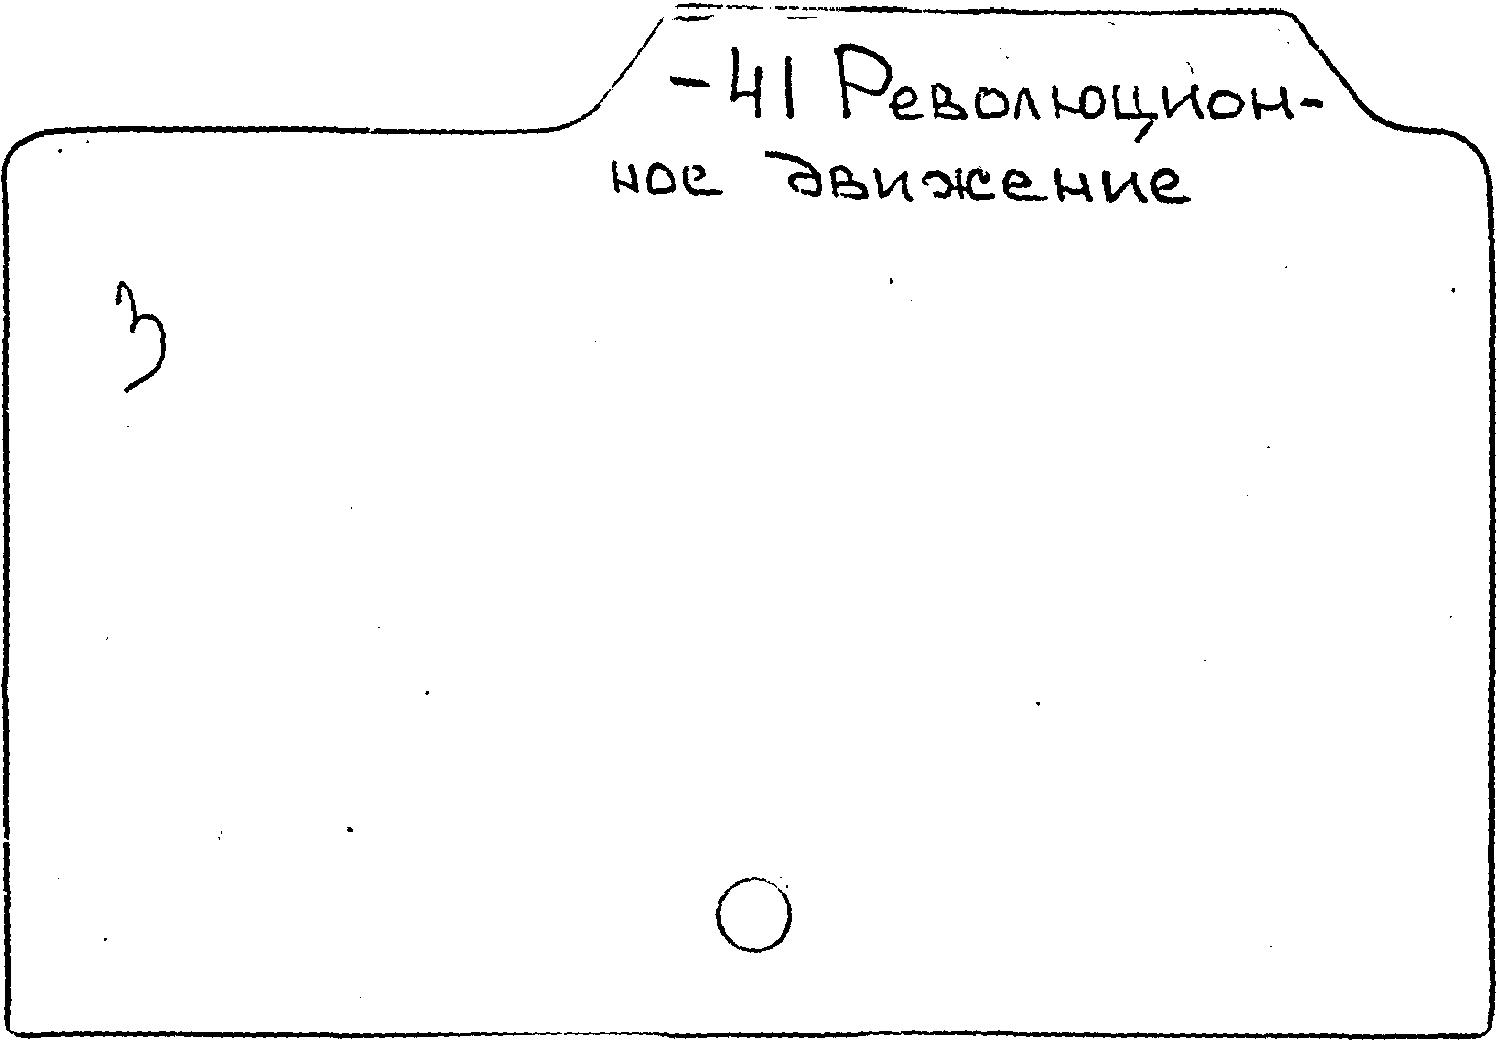 -41 Революцион-
ное движение
З